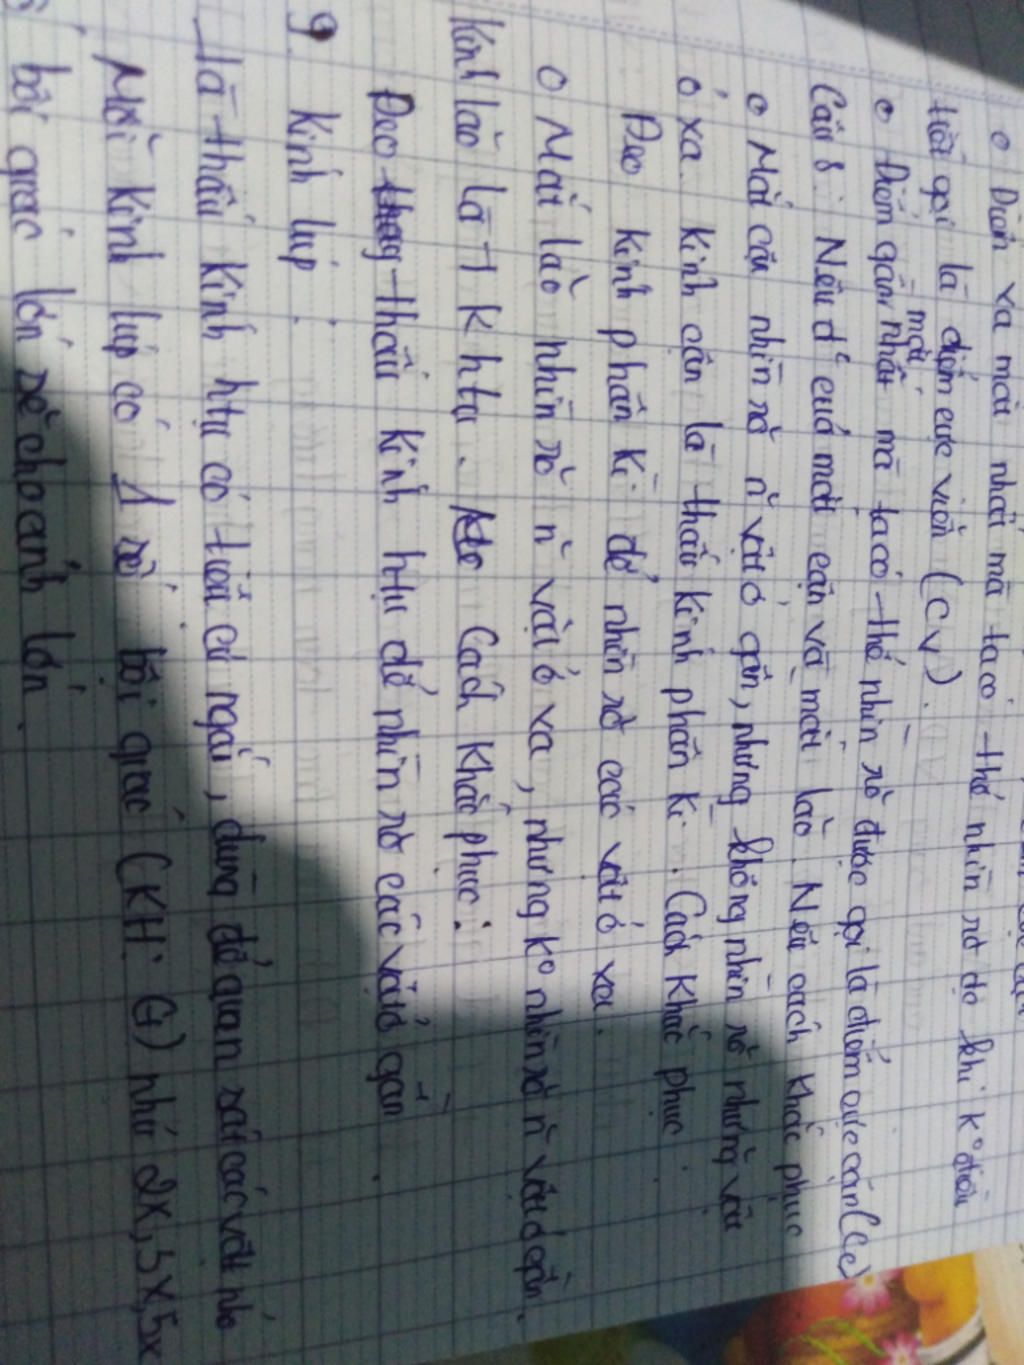 Điểm xa mắt nhất mà ta có thể nhìn rõ đc khi kº điều
tiết gọi là điểm cực viễn (Cv).
Điểm gần mắt nhất mà ta có thể nhìn rõ được gọi là điểm cực cận (Cc)
Câu 8: Nêu đ² của mắt cận và mắt lão. Nêu cách khắc phục
Mắt cận nhìn rõ n~ vật ở gần, nhưng không nhìn rõ những vật
ở xa. Kính cận là thấu kính phân kì. Cách khắc phục
Đeo kính phân kì để nhìn rõ các vật ở xa.
Mắt lão nhìn rõ n~ vật ở xa, nhưng kº nhìn rõ n~ vật ở gần.
Kính lão là T K htụ. Cách khắc phục:
Đeo thấu kính htụ để nhìn rõ các vật ở gần.
9. Kính lúp:
là thấu kính htụ có tiêu cự ngắn, dùng để quan sát các vật nhỏ
Mỗi kính lúp có 1 số bội giác (KH: G) như 2X, 3X, 5X
bội giác lớn sẽ cho ảnh lớn.